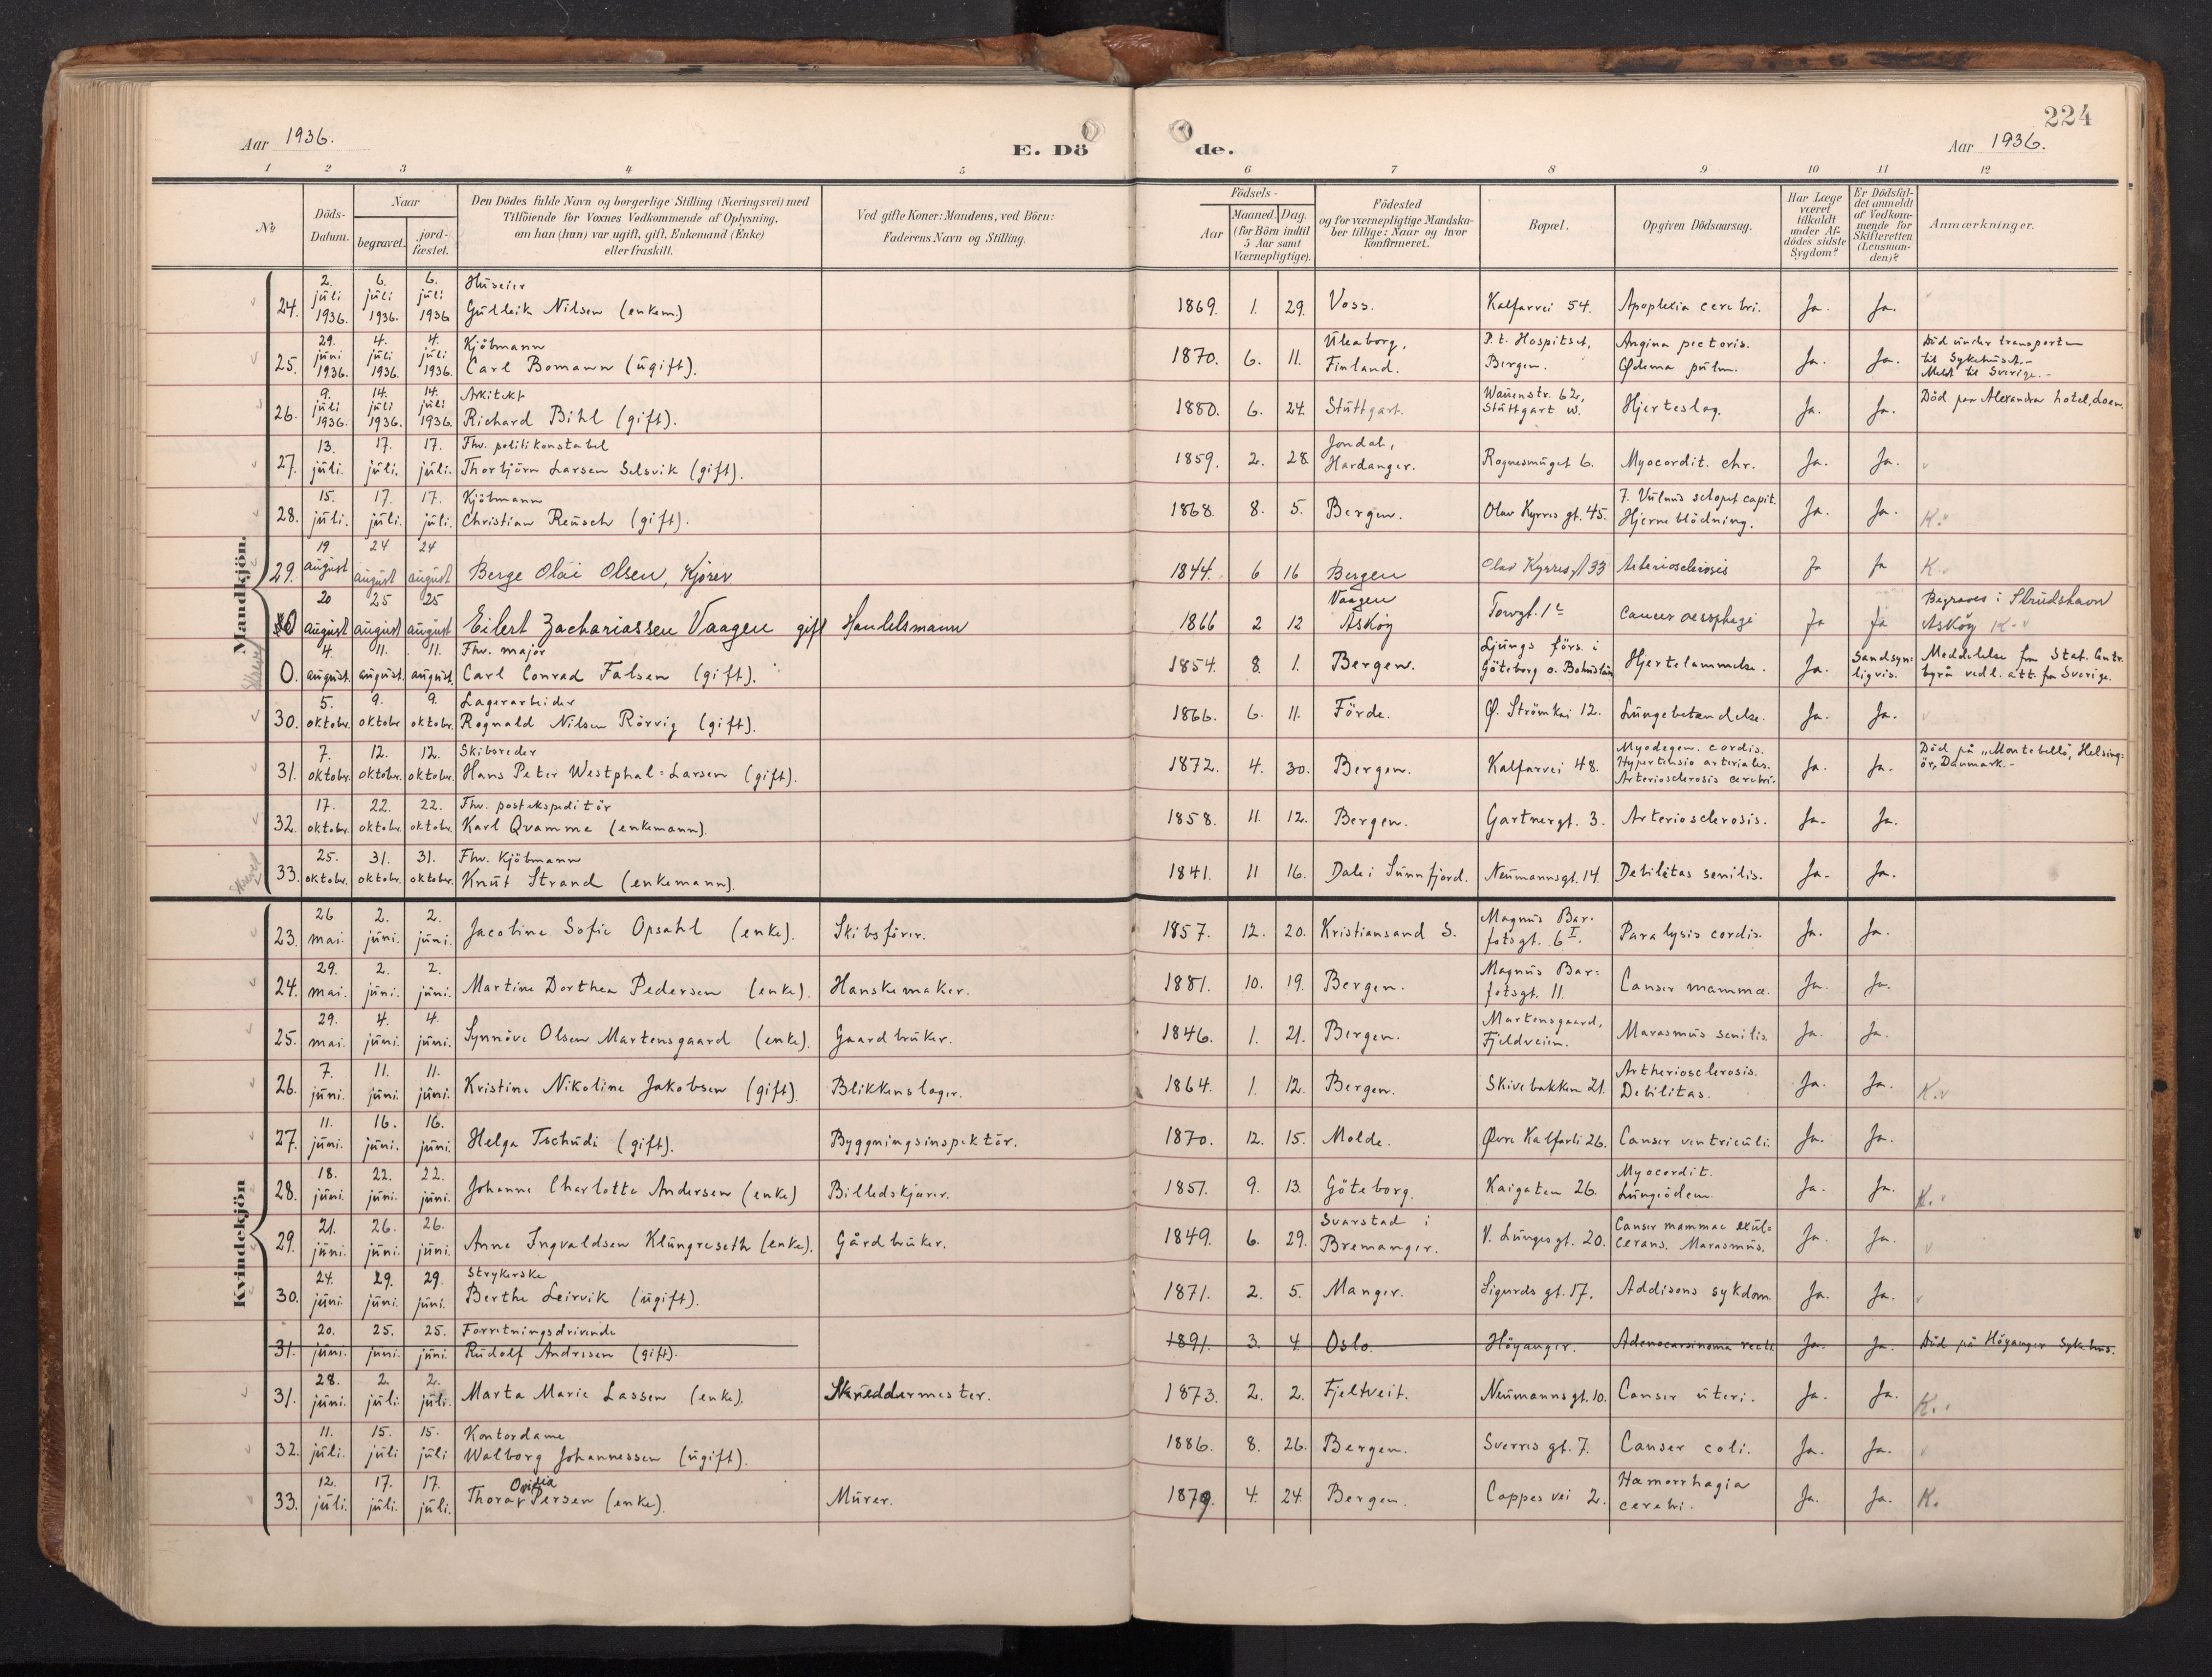 224
Aar 1936.
E. Dö
de.
Aar 1936.
1 2 3 4 5 6 7 8 9 10 11 12
No
Döds-
Datum.
Naar
begravet.
jord-
fæstet.
Den Dödes fulde Navn og borgerlige Stilling (Næringsvei) med
Tilföiende for Voxnes Vedkommende af Oplysning,
om han (hun) var ugift, gift, Enkemand (Enke)
eller fraskilt.
Ved gifte Koner: Mandens, ved Börn:
Faderens Navn og Stilling.
Födsels-
Aar
Maaned. Dag.
(for Börn indtil
5 Aar samt
Værnepligtige).
Födested
og for værnepligtige Mandska-
ber tillige: Naar og hvor
konfirmeret.
Bopæl.
Opgiven Dödsaarsag.
Har Læge
været
tilkaldt
under Af-
dödes sidste
Sygdom?
Er Dödsfal-
det anmeldt
af Vedkom-
mende for
Skifteretten
(Lensman-
den)?
Anmærkninger.
Mandkjön.
2. 6. 6. Huseier
juli juli juli
24. 1936. 1936. 1936 Gulleik Nilsen (enkem) 1869. 1. 29. Voss. Kalfarvei 54. Apoplexia cerebri. Ja. Ja.
29. 4. 4. Kjöbmann Uleaborg, P.t. Hospitset, Angina pectoris. Död under transporten
juni juli juli til Sykehuset.-
25. 1936. 1936. 1936. Carl Bomann (ugift). 1870. 6. 11. Finland. Bergen. Ødema pulm. Ja. Ja. Meldt til Sverige.-
9. 14. 14. Arkitekt Stuttgart w. Död paa Alexandra hotel, Loen.
juli juli juli
26. 1936. 1936. 1936. Richard Bihl (gift). 1880. 6. 24. Stuttgart. Hjerteslag. Ja. Ja.
13. 17. 17. Fhv. politikonstabel Jondal,
27. juli. juli. juli. Thorbjörn Larsen Selsvik (gift). 1859. 2. 28 Hardanger. Rognesmuget 6. Myocordit. chr. Ja. Ja.
15. 17. 17. Kjöbmann 7. Vulnus sclopet capit.
28. juli. juli. juli. Christian Reusch (gift). 1868. 8. 5. Bergen. Olav Kyrres gt. 45. Hjerneblödning. Ja. Ja. K.
19 24 24
29. august august august Berge Olai Olsen, Kjörer 1844. 6 16 Bergen Olav Kyrres gt 33 Arteriosclerosis Ja Ja K.
20 25 25 Vaagen Begraves i Strudshavn
0 august august august Eilert Zachariassen Vaagen gift Handelsmann 1866 2 12 Asköy Torvgt. 1c Cancer oesophagi Ja Ja Asköy K.
4. 11. 11. Fhv. major Ljungs förs. i Sandsyn- Meddelelse fra Stat. Centr.
0. august. august. august. Carl Conrad Falsen (gift). 1854. 8. 1. Bergen. Göteborg o. Bohuslän Hjertelammelse. Ja. ligvis. byrå vedl. att. fra Sverige.
5. 9. 9. Lagerarbeider
30. oktober. oktober oktober. Rognald Nilsen Rörvig (gift). 1866. 6. 11. Förde. Ø. Strömkai 12. Lungebetændelse. Ja. Ja.
7. 12. 12. Skibsreder Myodegen. cordis. Död på "Montebello", Helsing-
31. oktober. oktober. oktober. Hans Peter Westphal-Larsen (gift). 1872. 4. 30. Bergen. Kalfarvei 48. Hypertensio arterialis. Ja. Ja. ör, Danmark.-
Arteriosclerosis cerebri.
17. 22. 22. Fhv. postekspeditör
32. oktober. oktober. oktober. Karl Qvamme (enkemann). 1858. 11. 12. Bergen. Gartnergt. 3. Arteriosclerosis. Ja. Ja.
25. 31. 31. Fhv. Kjöbmann
33. oktober. oktober. oktober. Knut Strand (enkemann). 1841. 11 16. Dale i Sunnfjord. Neumannsgt. 14. Debilitas senilis. Ja. Ja.
Kvindekjön
26 2. 2. Magnus Bar-
23. mai. juni. juni. Jacobine Sofie Opsahl (enke). Skibsförer. 1857. 12. 20. Kristiansand S. fotsgt. 6 I. Paralysis cordis. Ja. Ja.
29. 2. 2. Magnus Bar-
24. mai. juni. juni. Martine Dorthea Pedersen (enke). Hanskemaker. 1881. 10. 19. Bergen. fotsgt. 11. Canser mamma. Ja. Ja.
29. 4. 4. Martensgaard,
25. mai. juni. juni. Synnöve Olsen Martensgaard (enke). Gaardbruker. 1846. 1. 21. Bergen. Fjeldveien. Marasmus senilis. Ja. Ja.
7. 11. 11. Artheriosclerosis.
26. juni. juni. juni. Kristine Nikoline Jakobsen (gift). Blikkenslager. 1864. 1. 12. Bergen. Skivebakken 21. Debilitas. Ja. Ja. K.
11. 16. 16.
27. juni. juni. juni. Helga Tschudi (gift). Byggningsinspektör. 1870. 12. 15. Molde. Øvre Kalfarli 26. Canser ventriculi. Ja. Ja.
18. 22. 22. Myocordit.
28. juni. juni. juni. Johanne Charlotte Andersen (enke) Billedskjærer. 1851. 9. 13. Göteborg. Kaigaten 26. Lungeödem. Ja. Ja. K.
21. 26. 26. Svarstad i Canser mammae exul-
29. juni. juni. juni. Anne Ingvaldsen Klungreseth (enke). Gårdbruker. 1849. 6. 29. Bremanger. V. Lungesgt. 20. cerans. Marasmus. Ja. Ja.
24. 29. 29. Strykerske
30. juni. juni. juni. Berthe Leirvik (ugift). 1871. 2. 5. Manger. Sigurds gt. 17. Addisons sykdom. Ja. Ja.
20. 25. 25. Forretningsdrivende
31. juni. juni. juni. Rudolf Andresen (gift). 1891. 3. 4. Oslo. Höyanger. Adenocarsinoma recti Ja. Ja. Död på Höyanger Sykehus.
28. 2. 2.
31. juni. juli. juli. Marta Marie Lassen (enke). Skreddermester. 1873. 2. 2. Fjeltveit. Neumannsgt. 10. Canser uteri. Ja. Ja. K.
11. 15. 15. Kontordame
32. juli. juli juli Walborg Johannessen (ugift). 1886. 8. 26. Bergen. Sverres gt. 7. Canser coli. Ja. Ja.
12. 17. 17. Ovidia Hæmorrhagia
33. juli. juli. juli. Thora Persen (enke). Murer. 1879. 4. 24. Bergen. Cappes vei 2. cerebri. Ja. Ja. K.